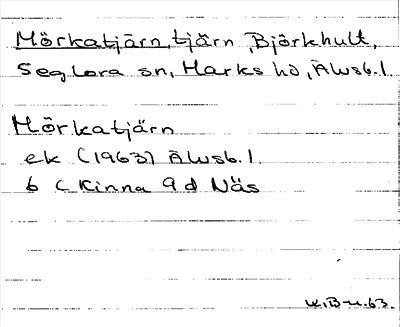 Mörkatjärn, tjärn, Björkhult,
Seglora sn, Marks hd, Älvsb.l.
Mörkatjärn
ek (1963) Älvsb.l.
6 C Kinna 9d Näs